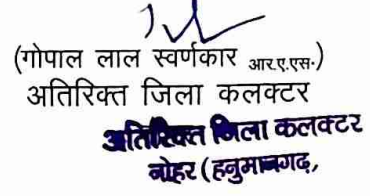 (गोपाल लाल स्वर्णकार आर.ए.एस.)
अतिरिक्त जिला कलक्टर
अतिरिक्त जिला कलक्टर
नोहर (हनुमानगढ़,